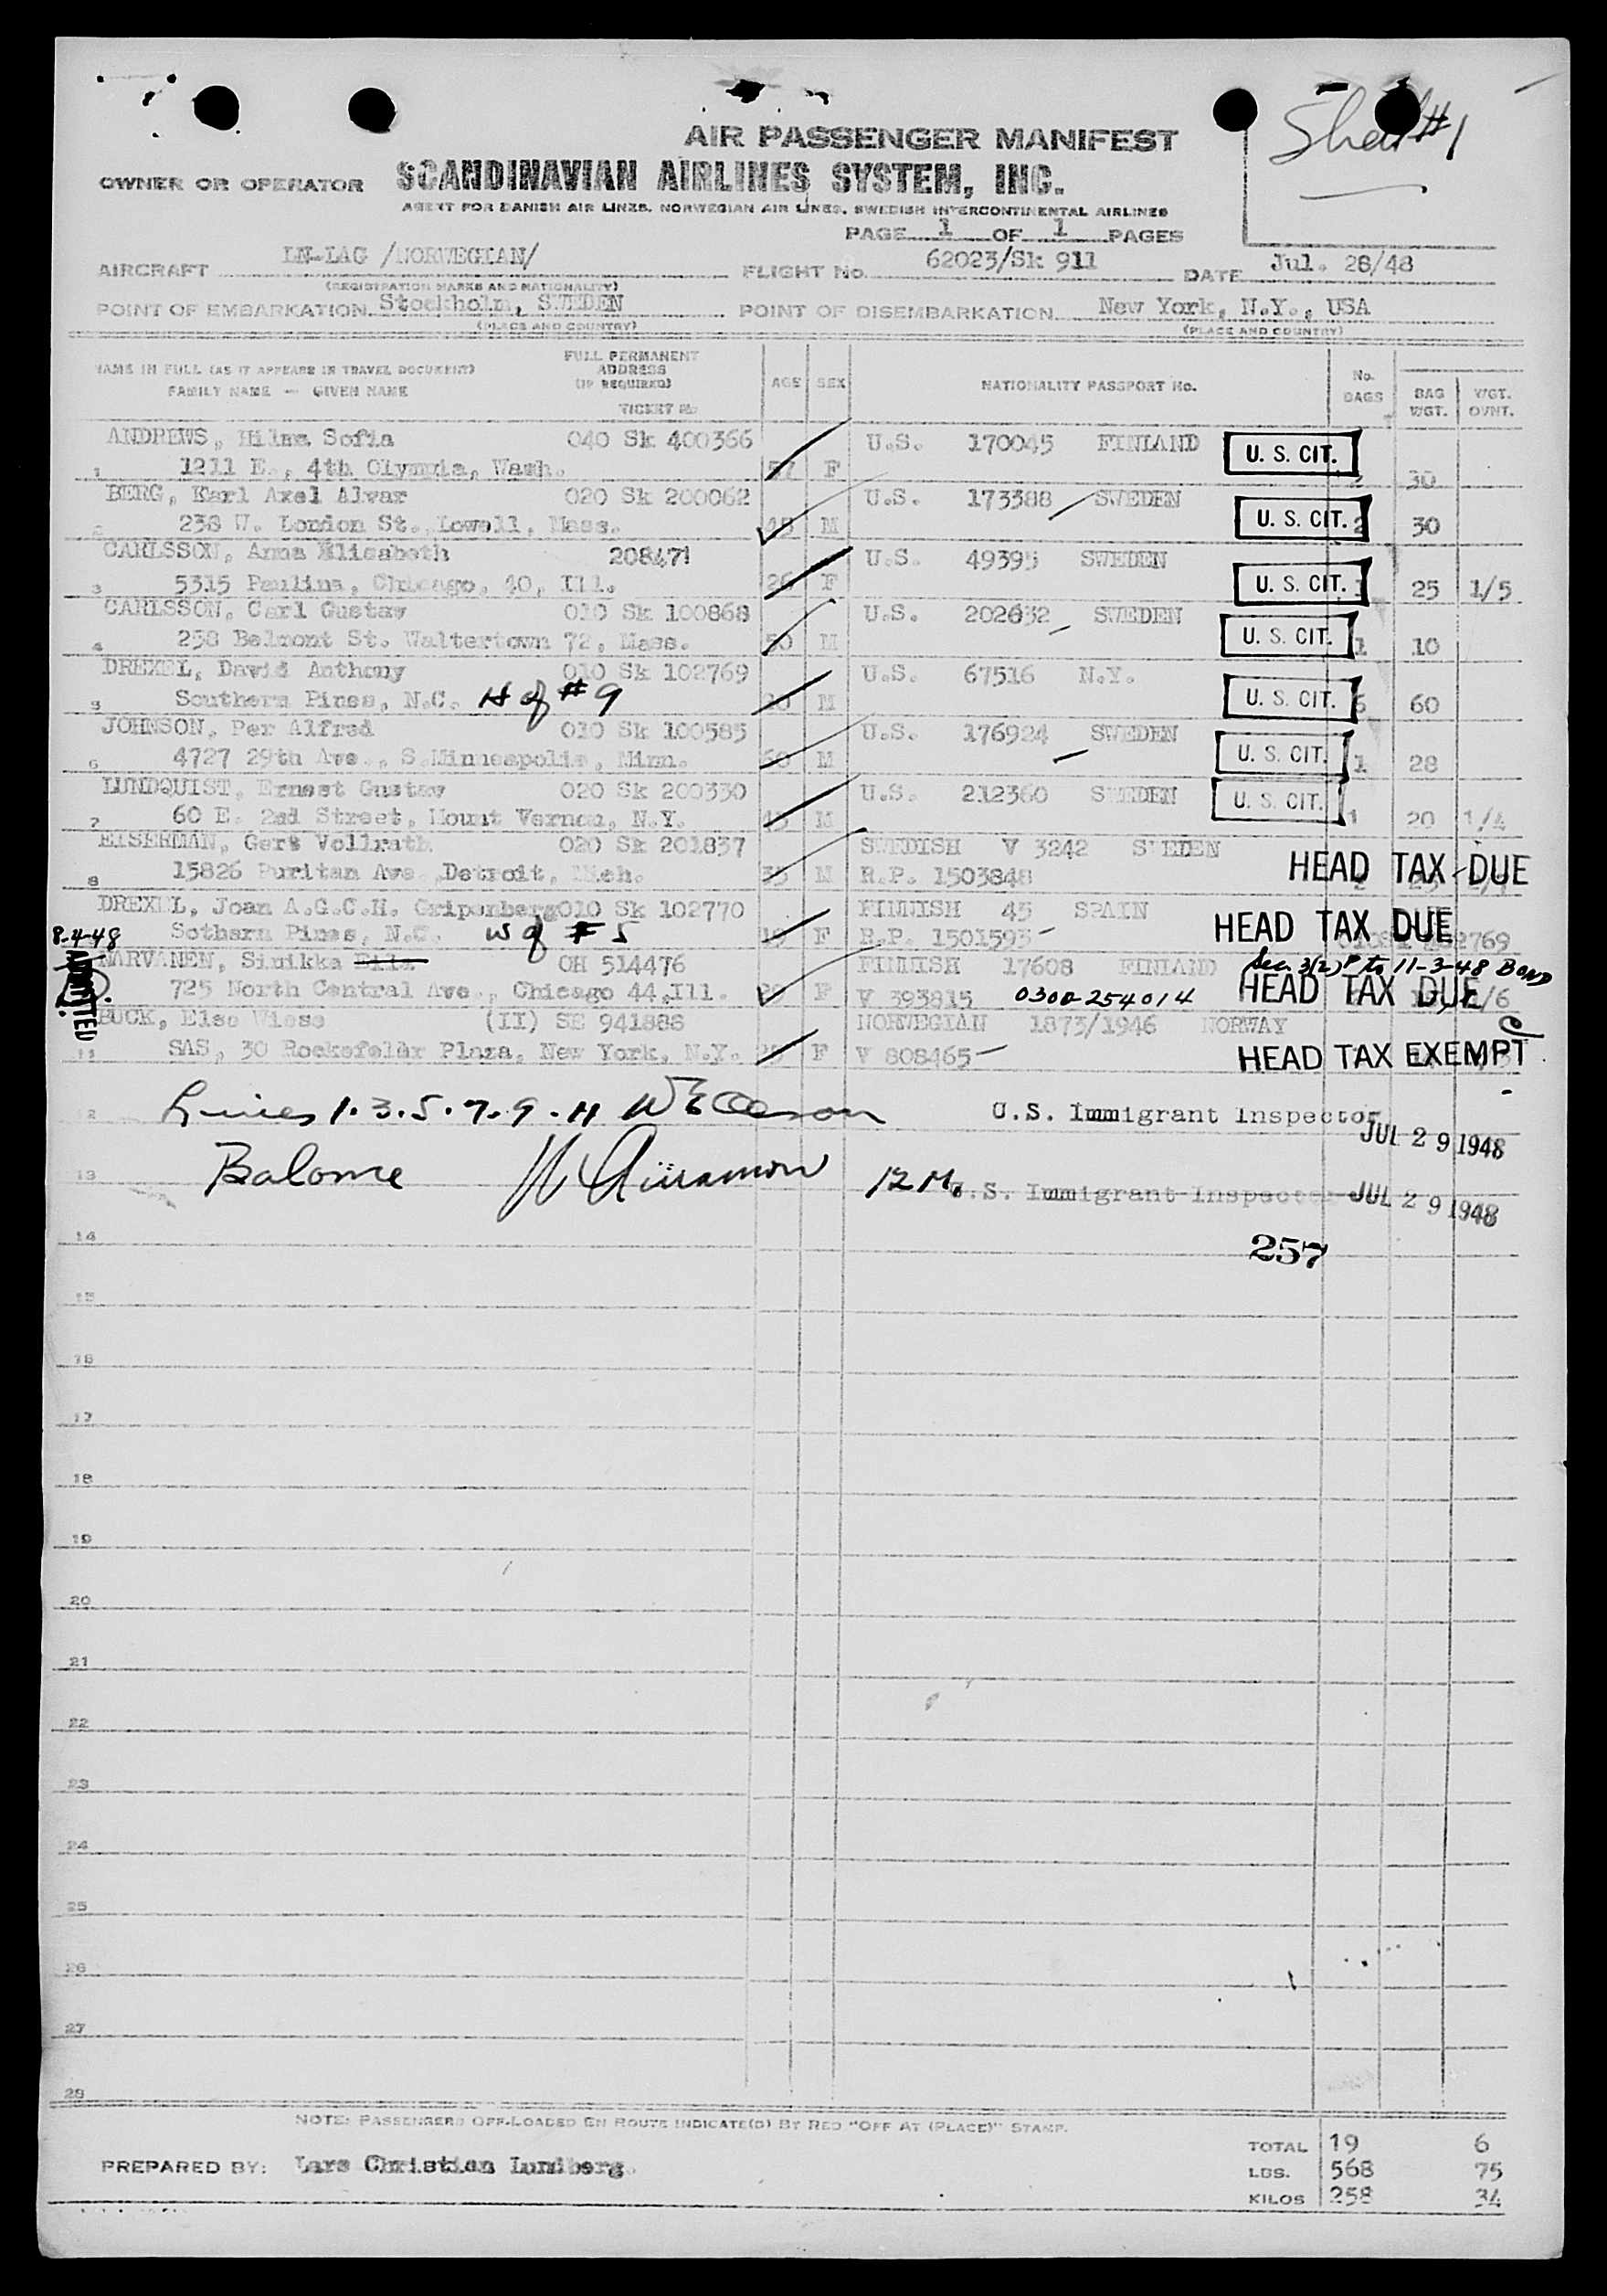 Sheet #1
AIR PASSENGER MANIFEST
OWNER OR OPERATOR SCANDINAVIAN AIRLINES SYSTEM, INC.
AGENT FOR DANISH AIR LINES, NORWEGIAN AIR LINES, SWEDISH INTERCONTINENTAL AIRLINES
PAGE 1 OF 1 PAGES
AIRCRAFT LN-LAG /NORWEGIAN/ FLIGHT No. 62023/Sk 911 DATE Jul. 28/48
(REGISTRATION MARKS AND NATIONALITY)
POINT OF EMBARKATION Stockholm, SWEDEN POINT OF DISEMBARKATION New York, N.Y., USA
(PLACE AND COUNTRY) (PLACE AND COUNTRY)
NAME IN FULL (AS IT APPEARS IN TRAVEL DOCUMENT) FAMILY NAME — GIVEN NAME FULL PERMANENT ADDRESS (IF REQUIRED) TICKET No. AGE SEX NATIONALITY PASSPORT No. No. BAGS BAG WGT. WGT. OVNT.
ANDREWS, Hilma Sofia 040 Sk 400366 U.S. 170045 FINLAND U. S. CIT.
1 1211 E., 4th Olympia, Wash. 57 F 30
BERG, Karl Axel Alvar 020 Sk 200062 U.S. 173388 SWEDEN
2 238 W. London St. Lowell, Mass. 45 M U. S. CIT. 2 30
CARLSSON, Anna Elisabeth 208471 U.S. 49395 SWEDEN
3 5315 Paulina, Chicago, 40, Ill. 26 F U. S. CIT. 1 25 1/5
CARLSSON, Carl Gustav 010 Sk 100868 U.S. 202632 SWEDEN
4 238 Belmont St. Waltertown 72, Mass. 50 M U. S. CIT. 1 10
DREXEL, David Anthony 010 Sk 102769 U.S. 67516 N.Y.
5 Southern Pines, N.C. H of #9 M U. S. CIT. 6 60
JOHNSON, Per Alfred 010 Sk 100585 U.S. 176924 SWEDEN
6 4727 29th Ave., S.Minneapolis, Minn. 60 M U. S. CIT. 1 28
LUNDQUIST, Ernest Gustav 020 Sk 200330 U.S. 212360 SWEDEN U. S. CIT.
7 60 E. 2nd Street, Mount Vernon, N.Y. M 1 20 1/4
EISERMAN, Gert Vollrath 020 Sk 201837 SWEDISH V 3242 SWEDEN
8 15826 Puritan Ave. Detroit, Mich. 35 M R.P. 1503848 HEAD TAX DUE
DREXEL, Joan A.G.C.H. Gripenberg 010 Sk 102770 FINNISH 45 SPAIN
Sothern Pines, N.C. W of #5 19 F R.P. 1501593 HEAD TAX DUE
8-4-48 ADMITTED
NARVANEN, Sinikka OH 514476 FINNISH 17608 FINLAND Sec. 3(2) P to 11-3-48 BOND
725 North Central Ave., Chicago 44, Ill. F V 393815 0300-254014 HEAD TAX DUE 1/6
BUCK, Else Wiese (II) SE 941888 NORWEGIAN 1873/1946 NORWAY
11 SAS, 30 Rockefeler Plaza, New York, N.Y. F V 808465 HEAD TAX EXEMPT
12 Lines 1.3.5.7.9.11 U.S. Immigrant Inspector JUL 29 1948
13 Balance U.S. Immigrant Inspector JUL 29 1948
14 257
15
16
17
18
19
20
21
22
23
24
25
26
27
28
NOTE: PASSENGERS OFF-LOADED EN ROUTE INDICATE(D) BY RED "OFF AT (PLACE)" STAMP.
TOTAL 19 6
PREPARED BY: Lars Christian Lundberg. LBS. 568 75
KILOS 258 34